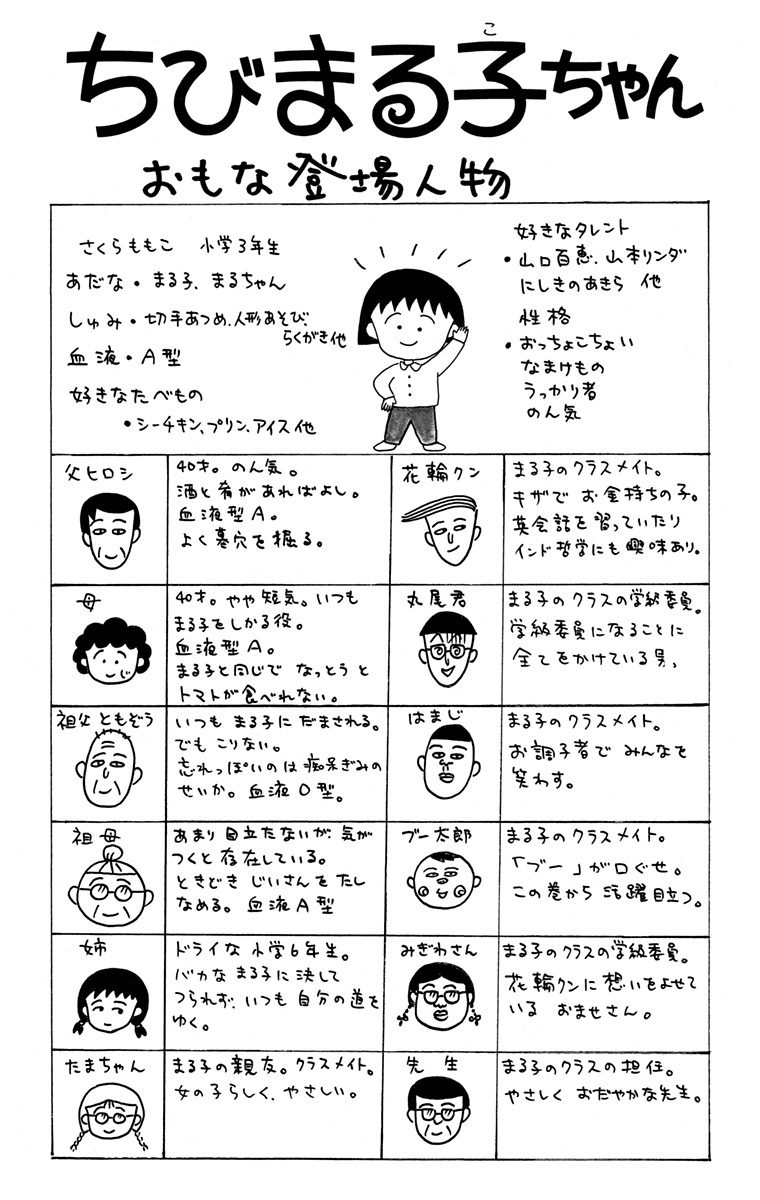 こ
ちびまる子ちゃん
おもな登場人物
さくらももこ 小学3年生
あだな・まる子、まるちゃん
しゅみ・切手あつめ、人形あそび、
らくがき他
血液・A型
好きなたべもの
・シーチキン、プリン、アイス他
好きなタレント
・山口百恵、山本リンダ
にしきのあきら 他
性格
・おっちょこちょい
なまけもの
うっかり者
のん気
父ヒロシ
40才。のん気。
酒と肴があればよし。
血液型A。
よく墓穴を掘る。
花輪クン
まる子のクラスメイト。
キザでお金持ちの子。
英会話を習っていたり
インド哲学にも興味あり。
母
40才。やや短気。いつも
まる子をしかる役。
血液型A。
まる子と同じで なっとうと
トマトが食べれない。
丸尾君
まる子のクラスの学級委員。
学級委員になることに
全てをかけている男。
祖父ともぞう
いつも まる子に だまされる。
でも こりない。
忘れっぽいのは痴呆ぎみの
せいか。血液O型。
はまじ
まる子のクラスメイト。
お調子者で みんなを
笑わす。
祖母
あまり目立たないが、気が
つくと存在している。
ときどき じいさんを たし
なめる。血液A型
ブー太郎
まる子のクラスメイト。
「ブー」が口ぐせ。
この巻から 活躍目立つ。
姉
ドライな小学6年生。
バカな まる子に決して
つられず、いつも自分の道を
ゆく。
みぎわさん
まる子のクラスの学級委員。
花輪クンに想いをよせて
いる おませさん。
たまちゃん
まる子の親友。クラスメイト。
女の子らしく、やさしい。
先生
まる子のクラスの担任。
やさしく おだやかな先生。